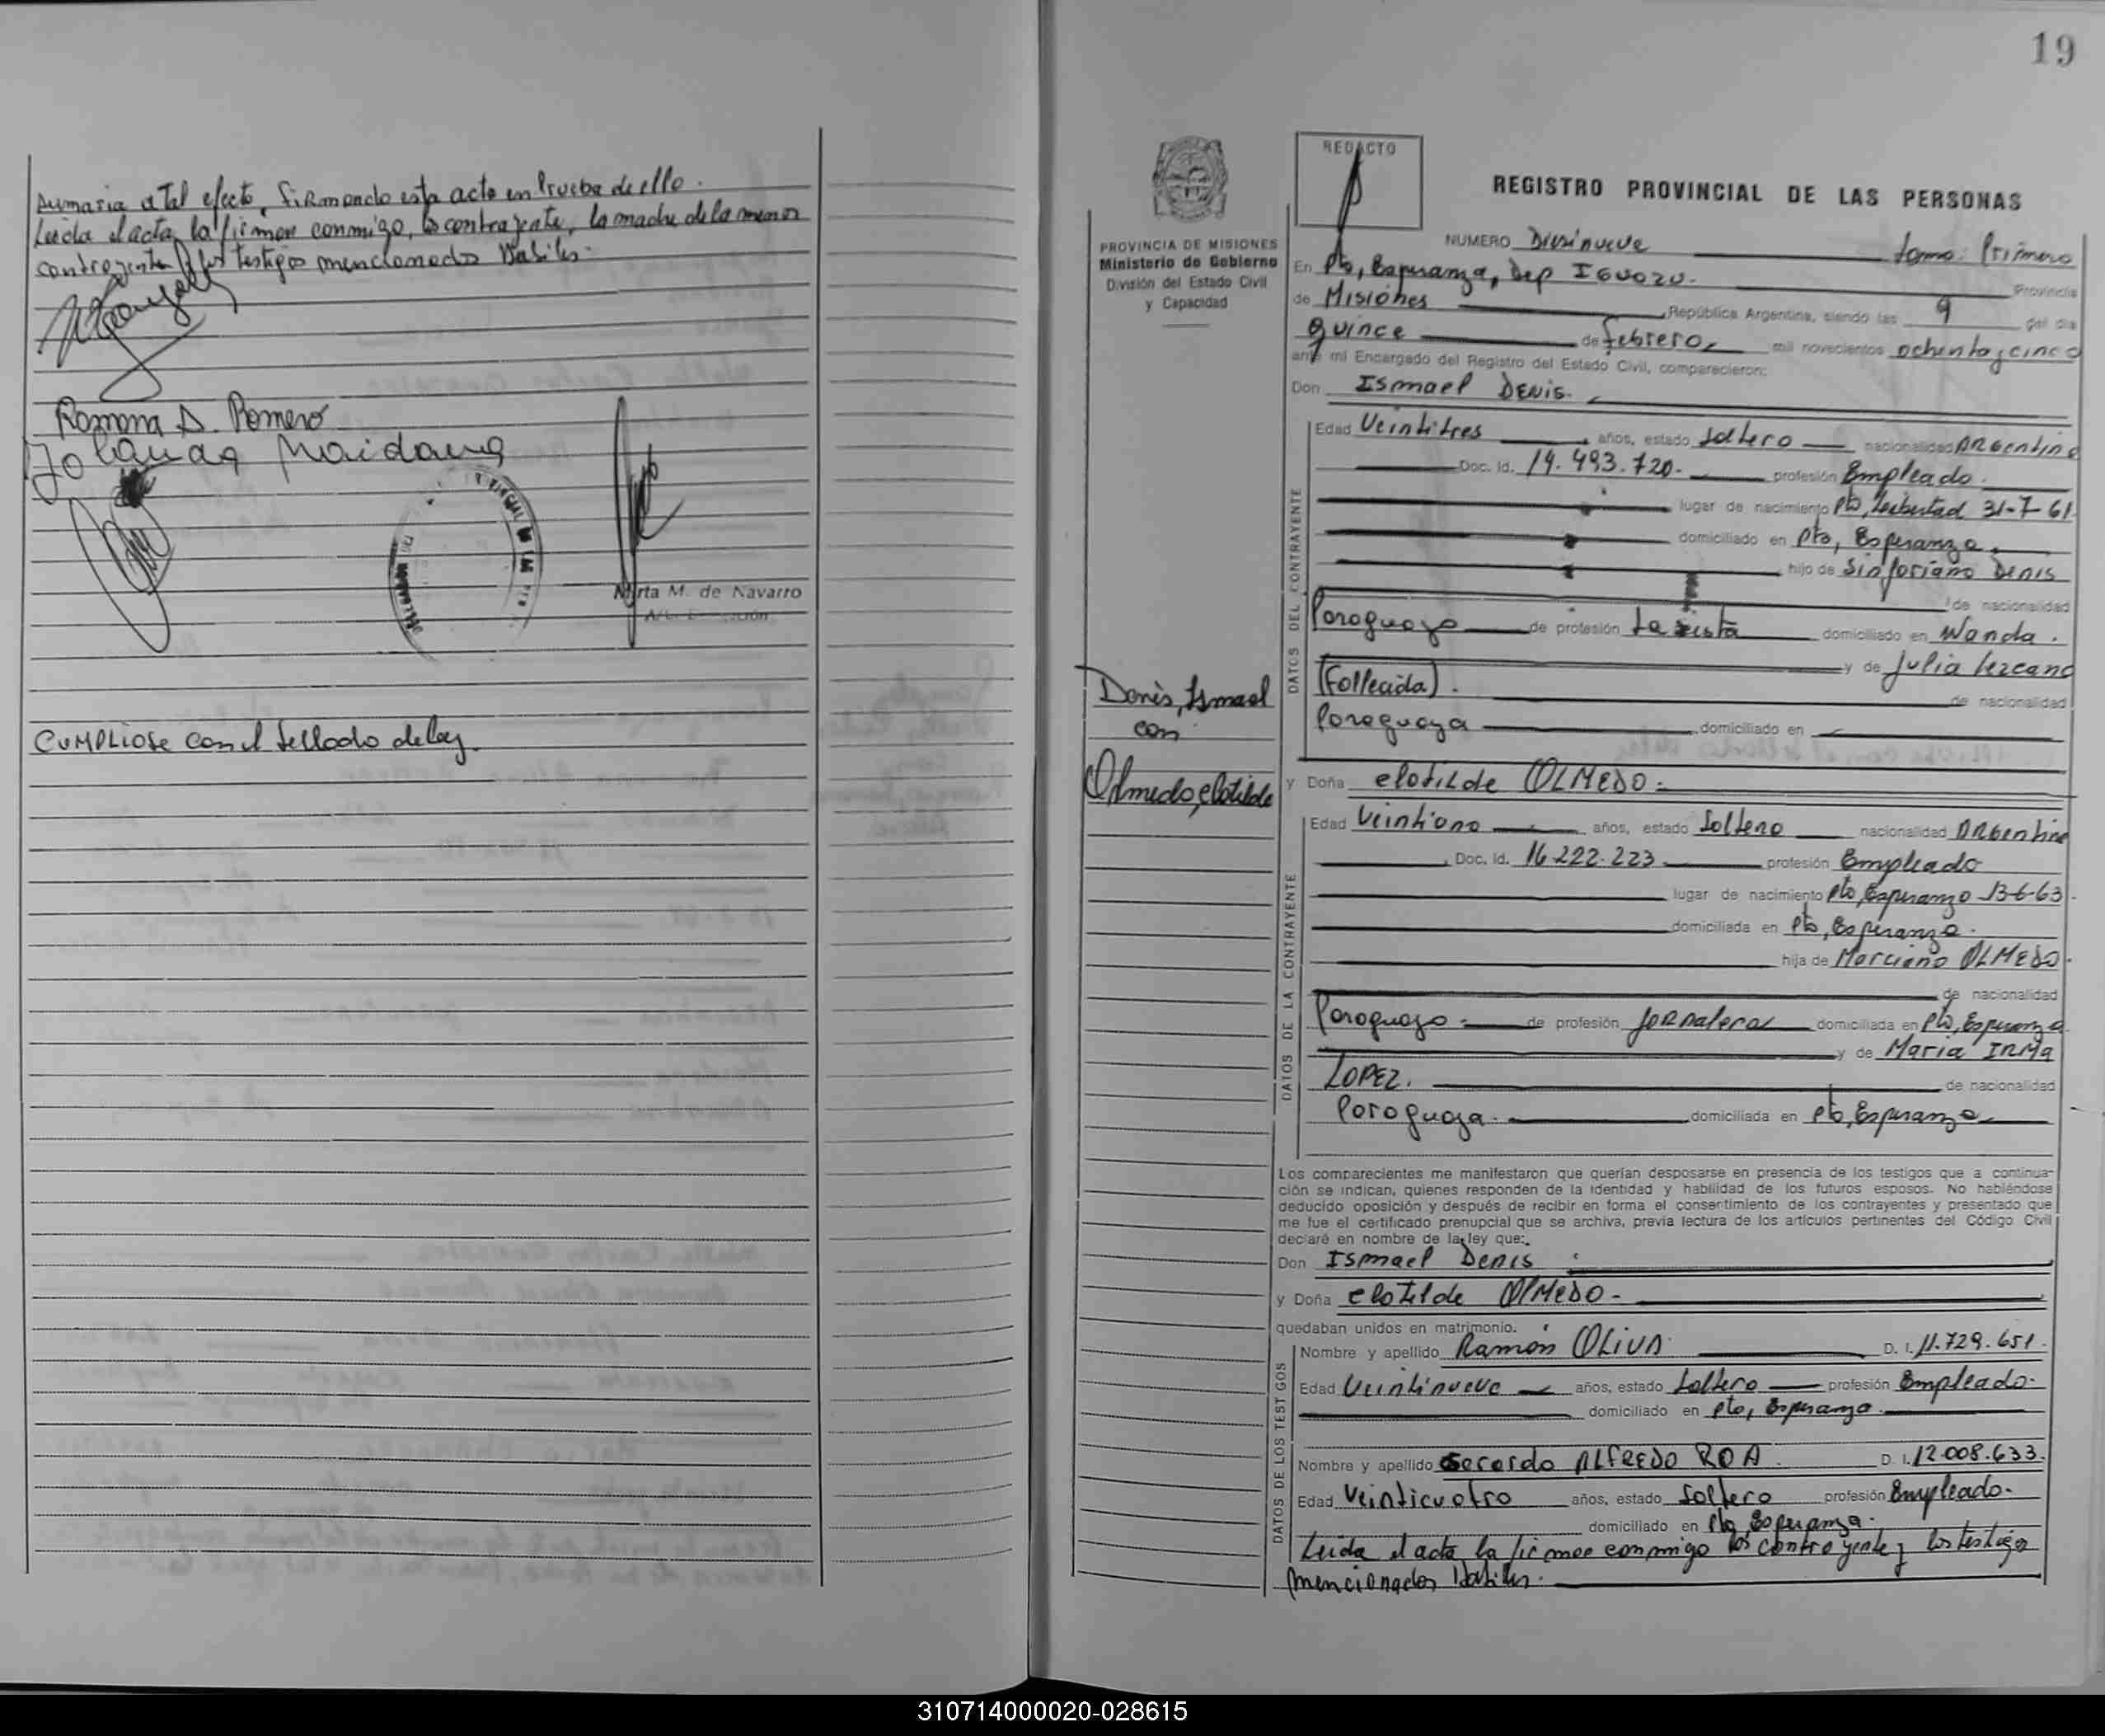 sumaria a tal efecto, firmando esta acta en Prueba de ello.
Leida el acta, la firman conmigo, los contrayente, la madre de la menor
contrayente y los testigos mencionados Habiles.-
Ramona A. Romero
Maidana
Mirta M. de Navarro
CUMPLIOSE con el Sellado de ley
19
REDACTO
REGISTRO PROVINCIAL DE LAS PERSONAS
PROVINCIA DE MISIONES
Ministerio de Gobierno
División del Estado Civil
y Capacidad
NUMERO Diesinueve tomo: Primero
En Pto, Esperanza, Dep IGUAZU. Provincia
de Misiones República Argentina, siendo las 9 del día
quince de febrero, mil novecientos ochenta y cinco
ante mi Encargado del Registro del Estado Civil, comparecieron:
Don Ismael DENIS.
Edad Veintitres años, estado Soltero nacionalidad ARGentino
Doc. Id. 14.493.720.- profesión Empleado.
lugar de nacimiento Pto, Libertad 31-7-61
domiciliado en Pto, Esperanza.
hijo de Sinforiano Denis
de nacionalidad
Paraguayo de profesión domiciliado en Wanda.
y de Julia Lezcano
(Folleciida). de nacionalidad
Paraguaya domiciliado en
DATOS DEL CONTRAYENTE
Denis, Ismael
con
Olmedo, Clotilde
y Doña Clotilde OLMEDO.-
Edad Veintiuno años, estado Soltero nacionalidad ARGentina
Doc. Id. 16.222.223 profesión Empleado
lugar de nacimiento Pto, Esperanza 13-6-63.
domiciliada en Pto, Esperanza.
hija de Marciano OLMEDO.
de nacionalidad
Paraguayo.- de profesión JORNALERO domiciliada en Pto, Esperanza
y de Maria IRMA
LOPEZ. de nacionalidad
Paraguaya.- domiciliada en Pto, Esperanza
DATOS DE LA CONTRAYENTE
Los comparecientes me manifestaron que querían desposarse en presencia de los testigos que a continua-
ción se indican, quienes responden de la identidad y habilidad de los futuros esposos. No habiéndose
deducido oposición y después de recibir en forma el consertimiento de los contrayentes y presentado que
me fue el certificado prenupcial que se archiva, previa lectura de los artículos pertinentes del Código Civil
declaré en nombre de la ley que:
Don Ismael Denis
y Doña Clotilde OlMEDO.-
quedaban unidos en matrimonio.
Nombre y apellido Ramón OLIVA D. I. 11.729.651.
Edad Veintinueve años, estado Soltero profesión Empleado.
domiciliado en Pto, Esperanza.
Nombre y apellido Gerardo ALFREDO ROA. D. I. 12.008.633.
Edad Veinticuatro años, estado Soltero profesión Empleado.
domiciliado en Pto, Esperanza.
DATOS DE LOS TESTIGOS
Leida el acta, la firman conmigo los contrayente y los testigo
mencionados Habiles.-
310714000020-028615